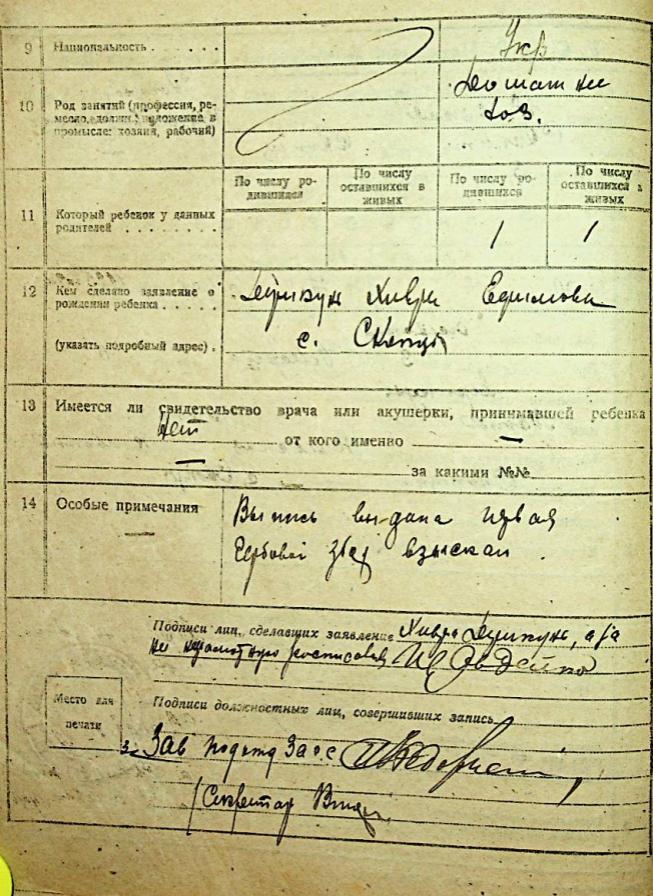 9 Национальность . . . . . . Укр
10 Род занятий (профессия, ре- Домашнее
месло, должн.) положение в хоз.
промысле: хозяин, рабочий)
По числу ро- По числу По числу ро- По числу
дившихся оставшихся в дившихся оставшихся в
живых живых
11 Который ребенок у данных
родителей . . . . . . . . 1 1
12 Кем сделано заявление о Хивря Ефимовна
рождении ребенка . . . . .
(указать подробный адрес) . с. Скопцы
13 Имеется ли свидетельство врача или акушерки, принимавшей ребенка
Нет от кого именно —
— за какими №№
14 Особые примечания Выпись выдана первая
— Гербовой збор взыскан
Подписи лиц, сделавших заявление Хивря а за
не грамотную росписался
Место для
печати
Подписи должностных лиц, совершивших запись
Зав подотд Загс
Секретар